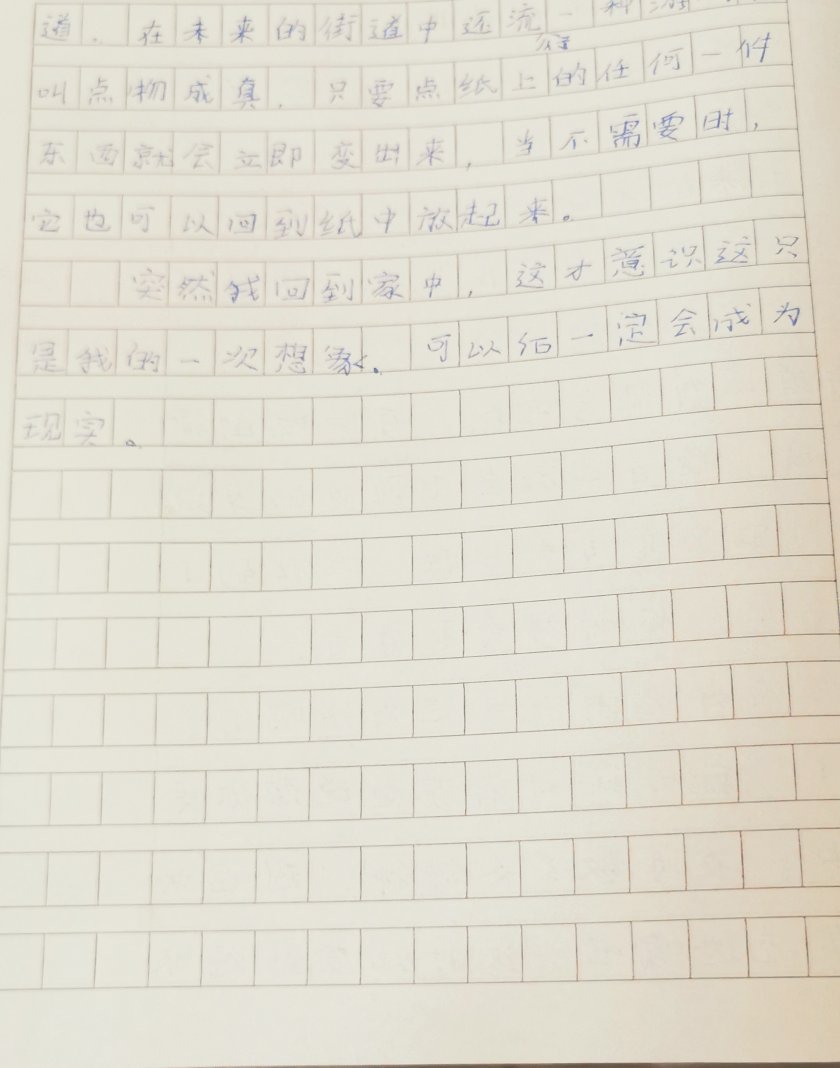 道．在未来的街道中还流行一种游
叫点物成真．只要点纸上的任何一件
东西就会立即变出来，当不需要时，
它也可以回到纸中放起来。
突然我回到家中，这才意识这只
是我的一次想象．可以后一定会成为
现实。